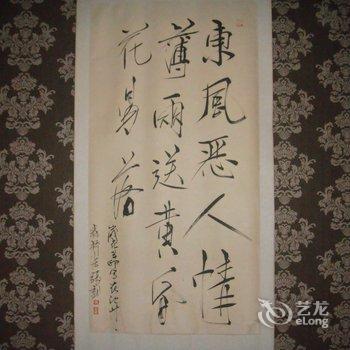 東風恶人情
薄雨送黄昏
花易落
艺龙
eLong.com